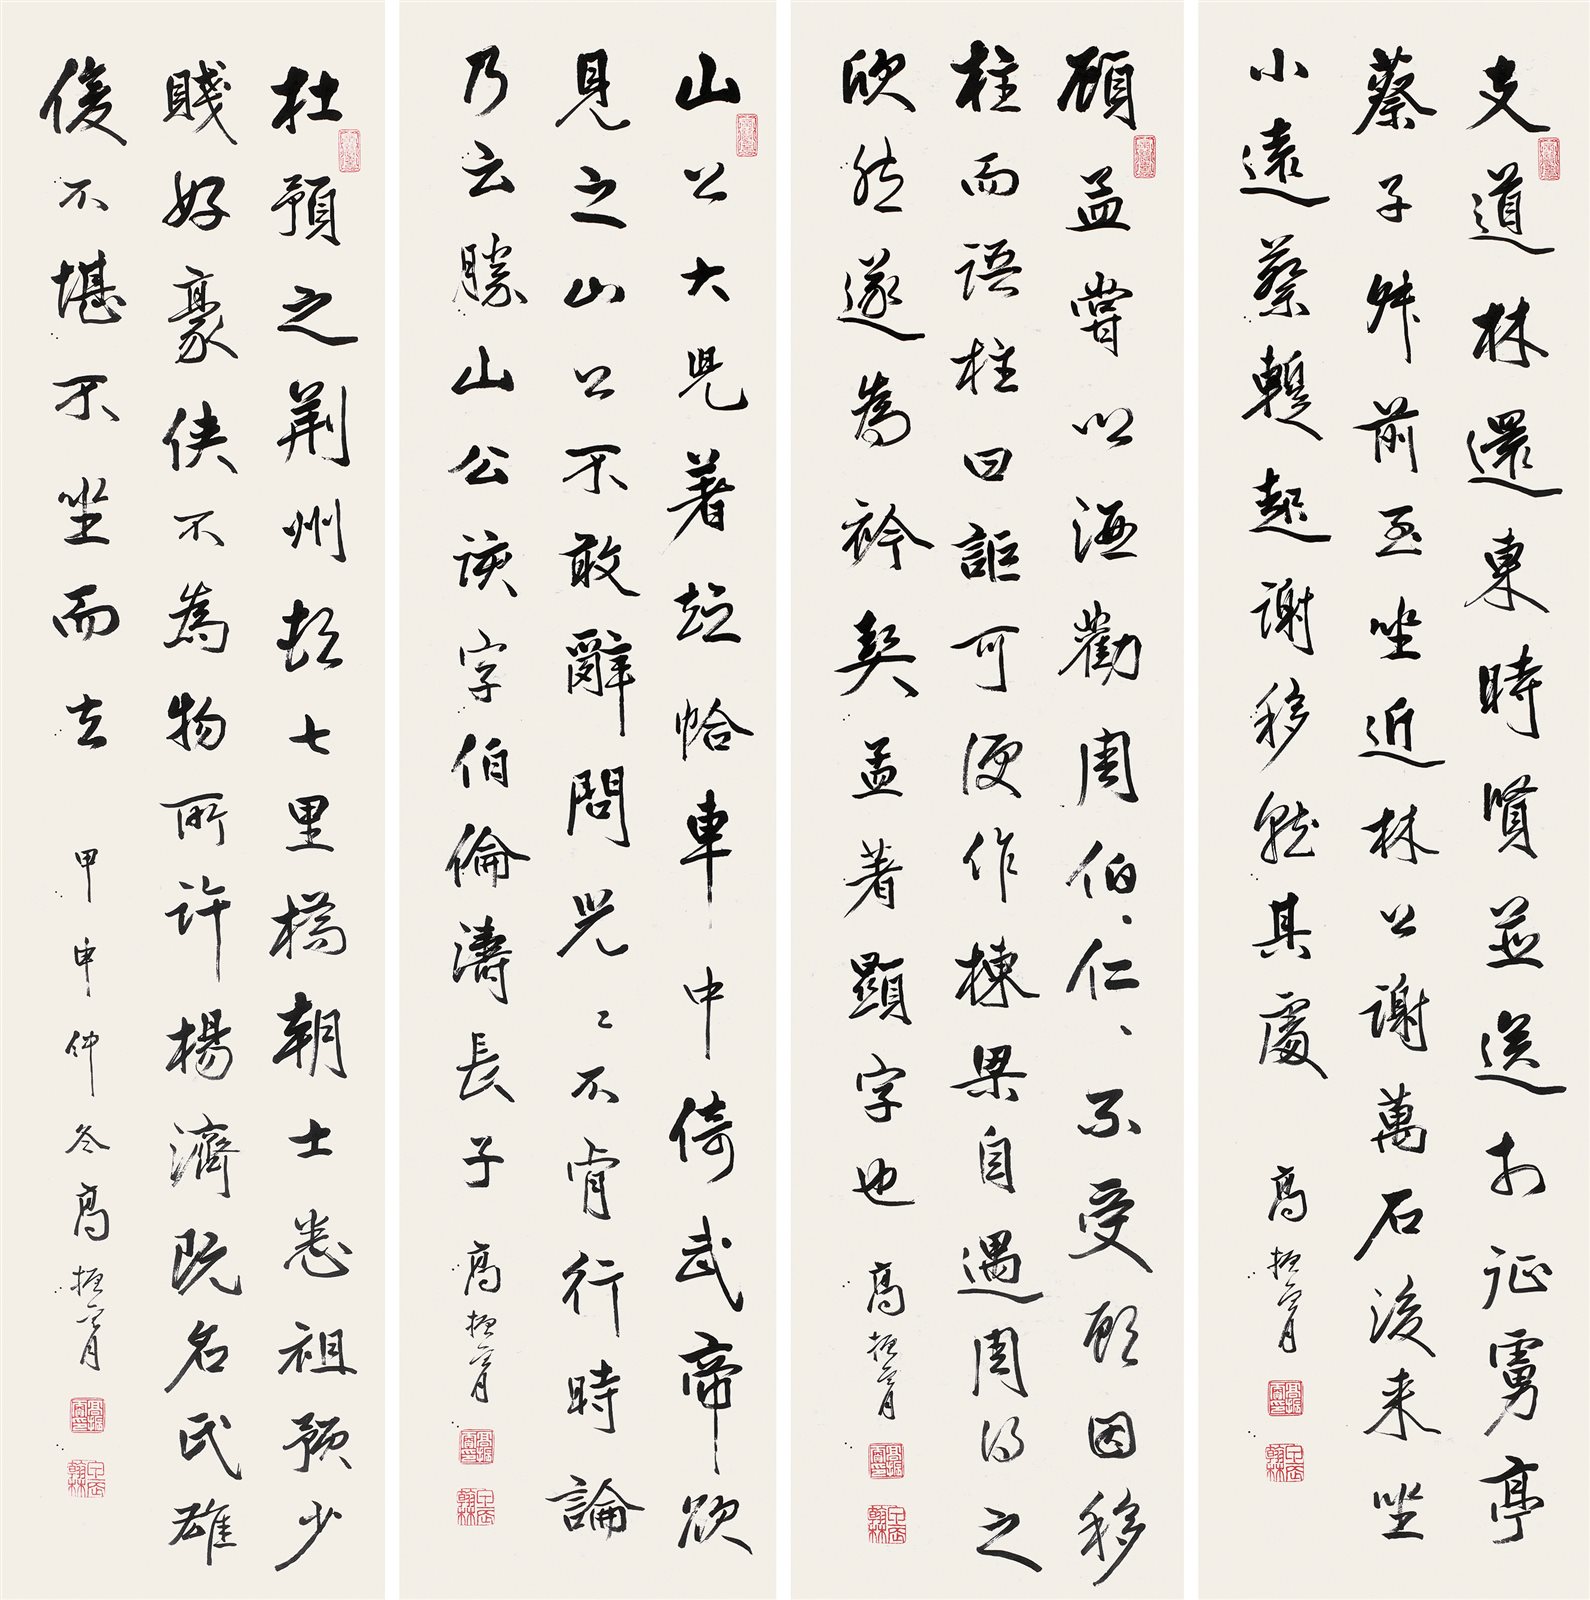 支道林還東時賢並送於征虜亭
蔡子叔前至坐近林公謝萬石後來坐
小遠蔡蹔起謝移就其處
高振霄
顧孟嘗以酒勸周伯、仁、不受顧因移
柱而語柱曰詎可便作棟梁自遇周得之
欣然遂為衿契孟著顯字也
高振霄
山公大兒著短帢車中倚武帝欲
見之山公不敢辭問兒〻不肯行時論
乃云勝山公該字伯倫濤長子
高振霄
杜預之荊州頓七里橋朝士悉祖預少
賤好豪俠不為物所許楊濟既名氏雄
俊不堪不坐而去
甲申仲冬高振霄